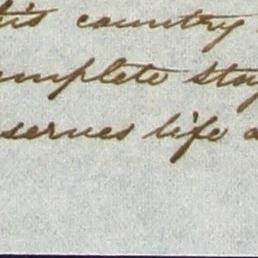 his country
omplete stag
serves life a